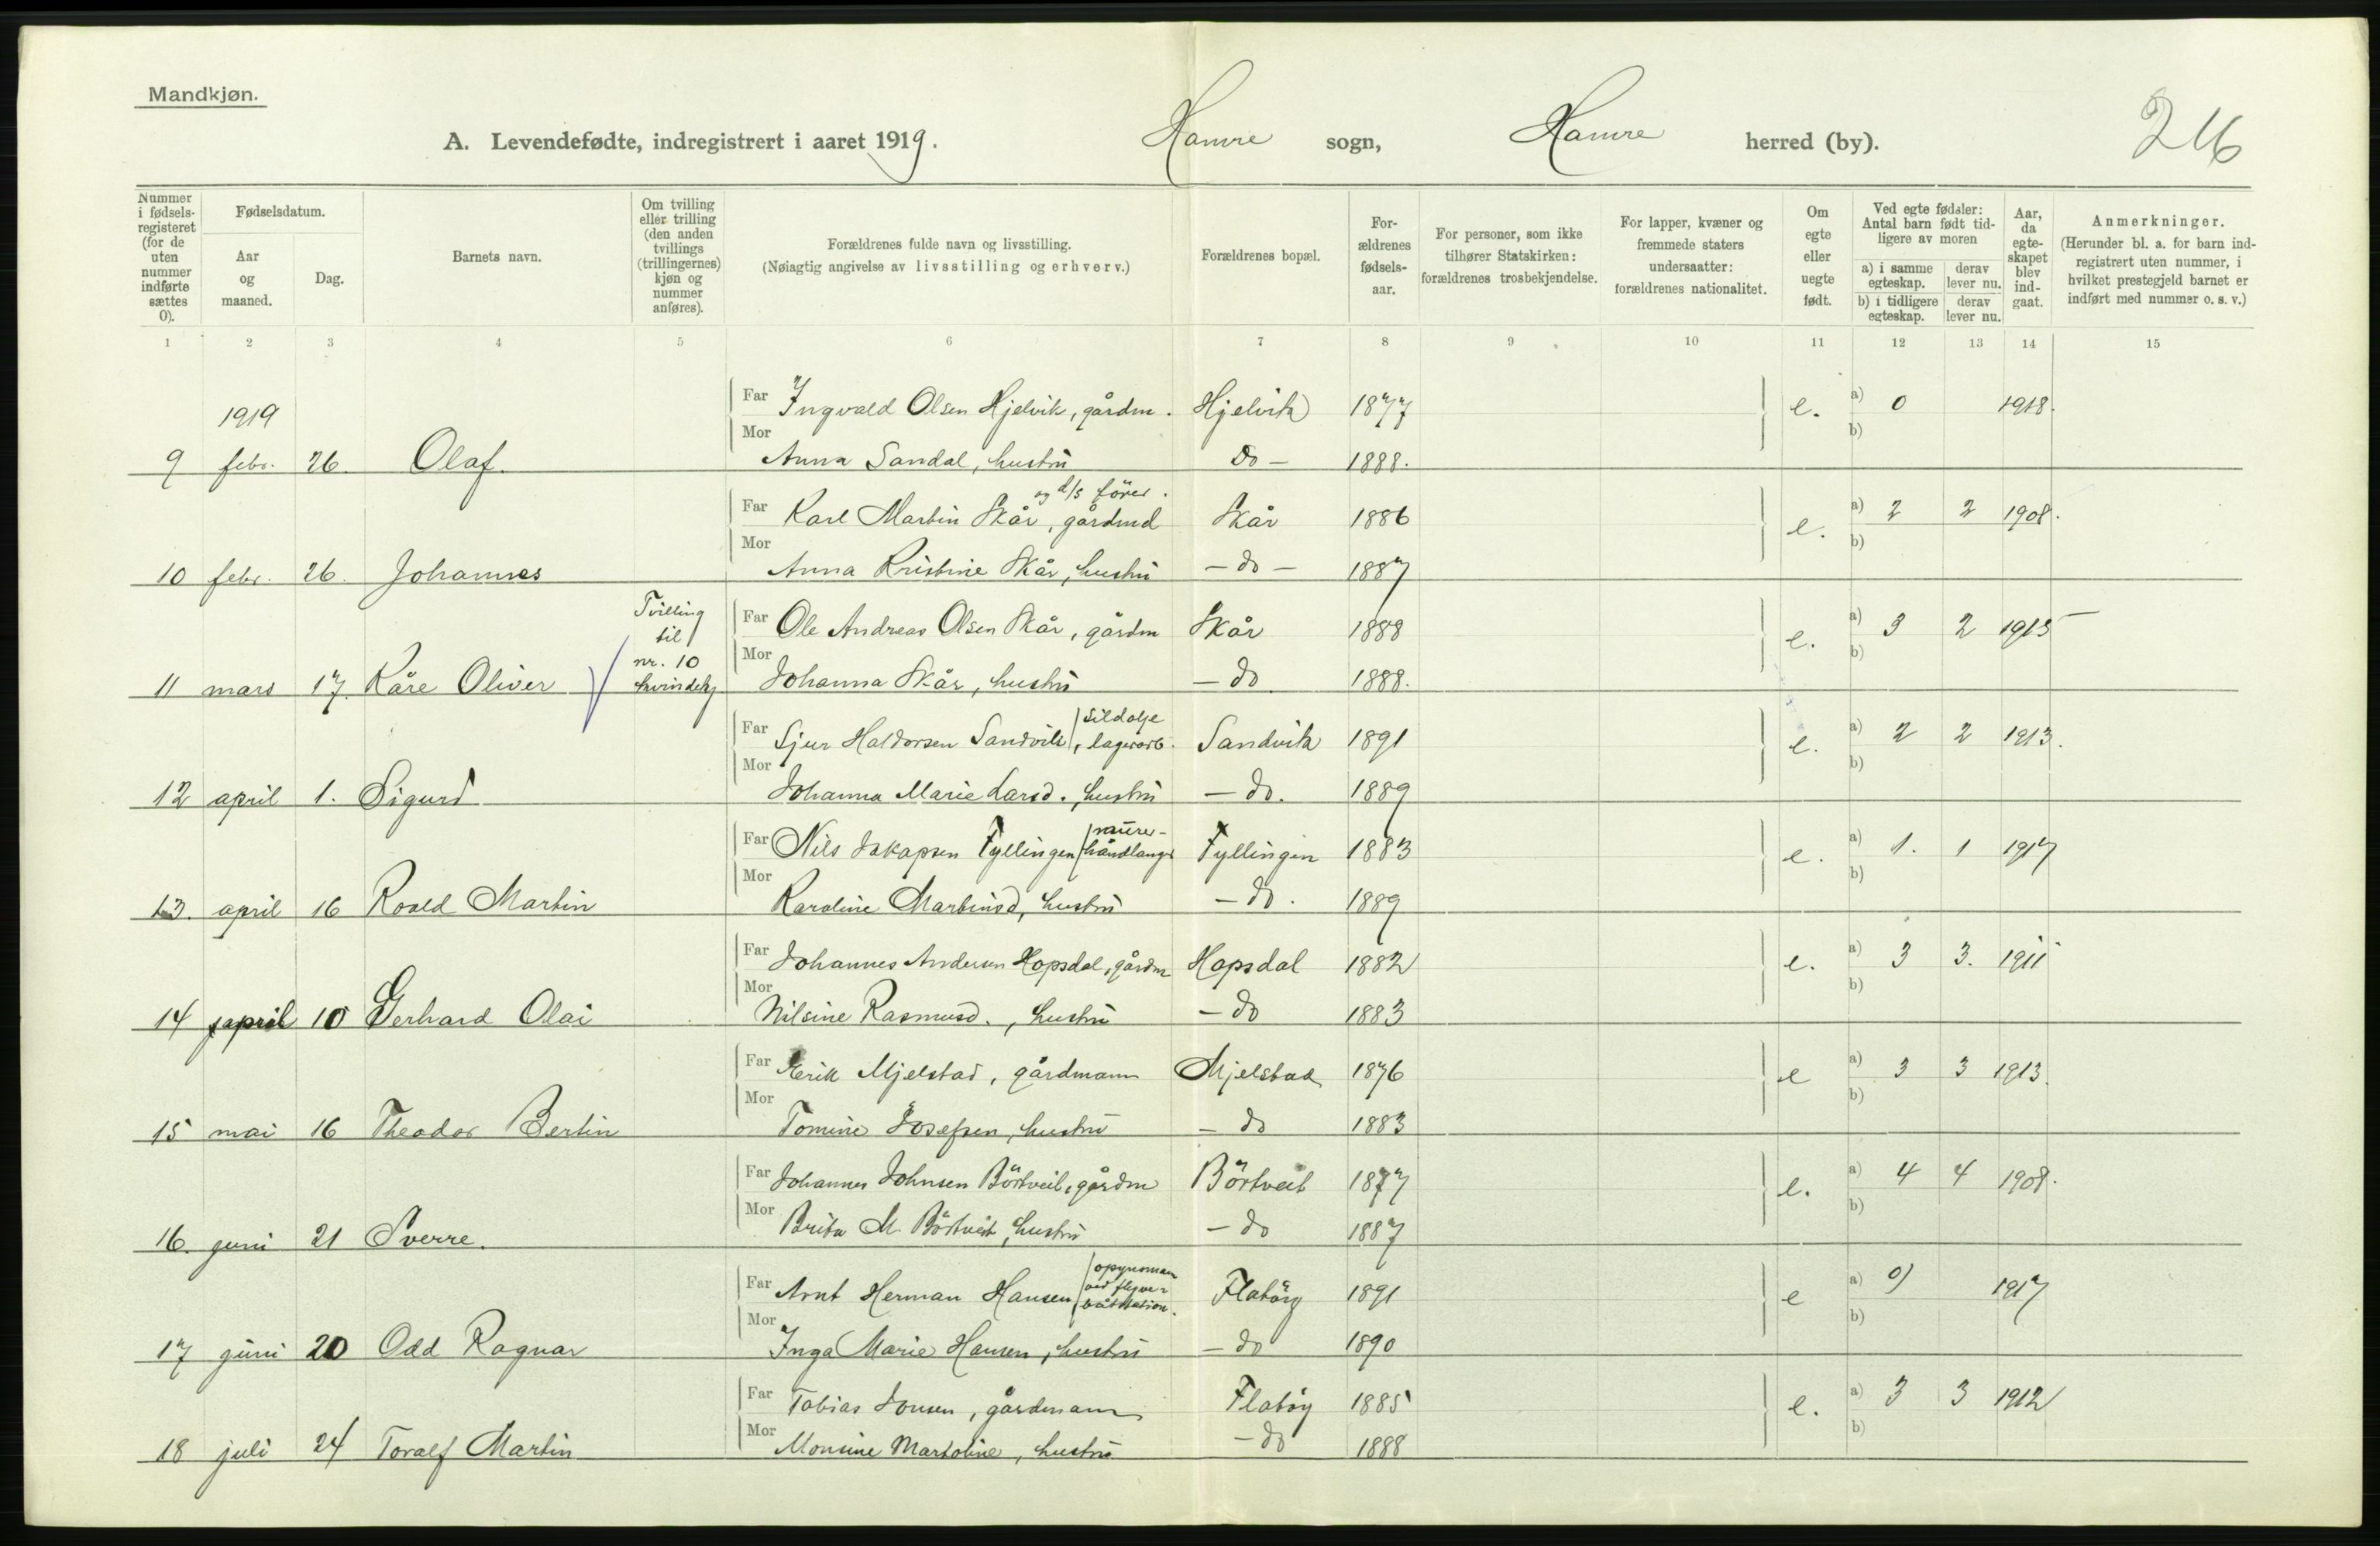 Mandkjøn.
A. Levendefødte, indregistrert i aaret 1919. Hamre sogn, Hamre herred (by). 26
Nummer i fødselsregisteret (for de uten nummer indførte sættes 0).
Fødselsdatum.
Aar og maaned.
Dag.
Barnets navn.
Om tvilling eller trilling (den anden tvillings (trillingernes) kjøn og nummer anføres).
Forældrenes fulde navn og livsstilling.
(Nøiagtig angivelse av livsstilling og erhverv.)
Forældrenes bopæl.
Forældrenes fødselsaar.
For personer, som ikke tilhører Statskirken: forældrenes trosbekjendelse.
For lapper, kvæner og fremmede staters undersaatter: forældrenes nationalitet.
Om egte eller uegte født.
Ved egte fødsler: Antal barn født tidligere av moren
a) i samme egteskap. derav lever nu.
b) i tidligere egteskap. derav lever nu.
Aar, da egteskapet blev indgaat.
Anmerkninger.
(Herunder bl. a. for barn indregistrert uten nummer, i hvilket prestegjeld barnet er indført med nummer o. s. v.)
1 2 3 4 5 6 7 8 9 10 11 12 13 14 15
1919
Far Ingvald Olsen Hjelvik, gårdm. Hjelvik 1877 e. a) 0 1918.
9 febr. 26. Olaf.
Mor Anna Sandal, hustru Do - 1888. b)
og d/s fører.
Far Karl Martin Skår, gårdmd Skår 1886 e. a) 2 2 1908.
10 febr. 26. Johannes
Mor Anna Kristine Skår, hustru - do - 1887 b)
Tvilling til nr. 10 kvindekj
Far Ole Andreas Olsen Skår, gårdm Skår 1888 e. a) 3 2 1915
11 mars 17. Kåre Oliver
Mor Johanna Skår, hustru - do. 1888. b)
Far Sjur Haldorsen Sandvik, sildolje lagerarb. Sandvik 1891 e. a) 2 2 1913.
12 april 1. Sigurd
Mor Johanna Marie Larsd., hustru - do. 1889 b)
Far Nils Jakopsen Fyllingen murer-håndlanger Fyllingen 1883 e. a) 1. 1 1917
13. april 16 Roald Martin
Mor Karoline Martinsd, hustru - do. 1889 b)
Far Johannes Andersen Hopsdal, gårdm Hopsdal 1882 e. a) 3 3. 1911
14 april 10 Gerhard Olai
Mor Nilsine Rasmusd., hustru - do 1883 b)
Far Erik Mjelstad, gårdmann Mjelstad 1876 e a) 3 3 1913.
15 mai 16 Theodor Bertin
Mor Tomine Josefsen, hustru - do 1883 b)
Far Johannes Johnsen Börtveit, gårdm Börtveit 1877 e. a) 4 4 1908.
16. juni 21 Sverre.
Mor Brita M. Börtveit, hustru - do 1887 b)
Far Arnt Herman Hansen, opsynsman ved flyver båtstation. Flatöy 1891 e a) 0) 1917
17 juni 20 Odd Ragnar
Mor Inga Marie Hansen, hustru - do 1890 b)
Far Tobias Jonsen, gårdmann Flatöy 1885 e. a) 3 3 1912
18 juli 24 Toralf Martin
Mor Monsine Martoline, hustru - do 1888 b)